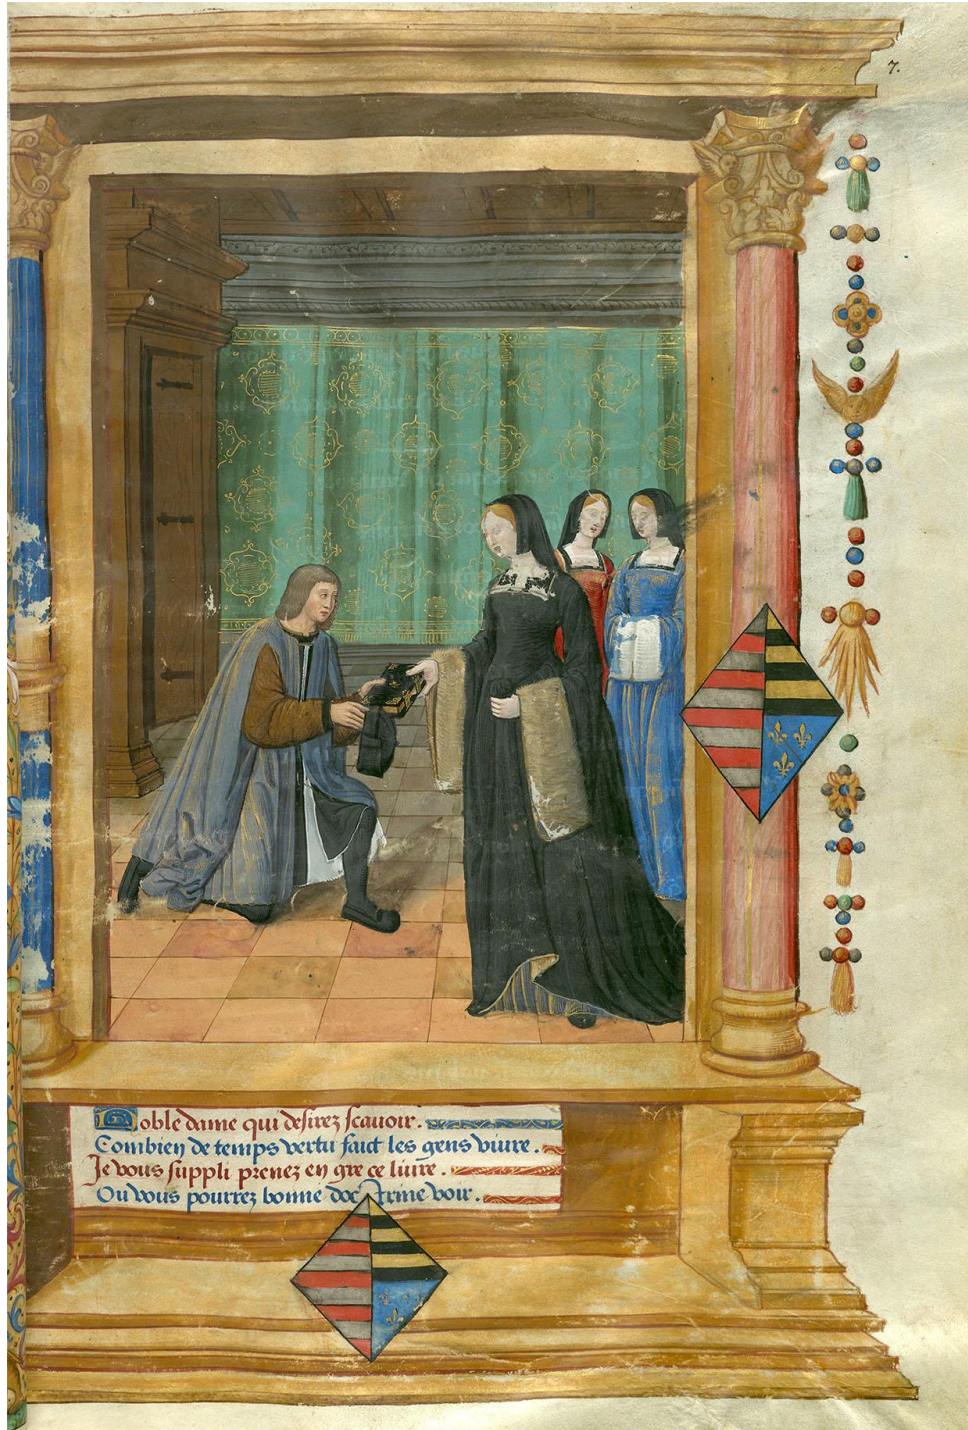 7.
Noble dame qui desirez scauoir.
Combien de temps vertu faict les gens viure.
Je vous suppli prenez en gre ce liure.
Ou vous pourrez bonne doctrine voir.